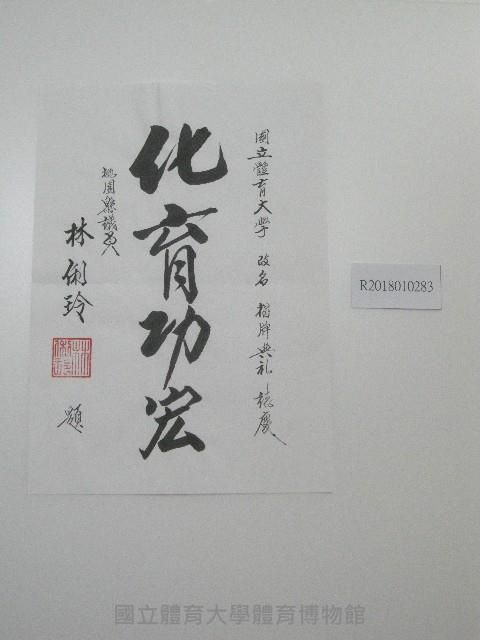 國立體育大學 改名 揭牌典礼 誌慶
化育功宏
桃園縣議員
林俐玲
題
R2018010283
國立體育大學體育博物館